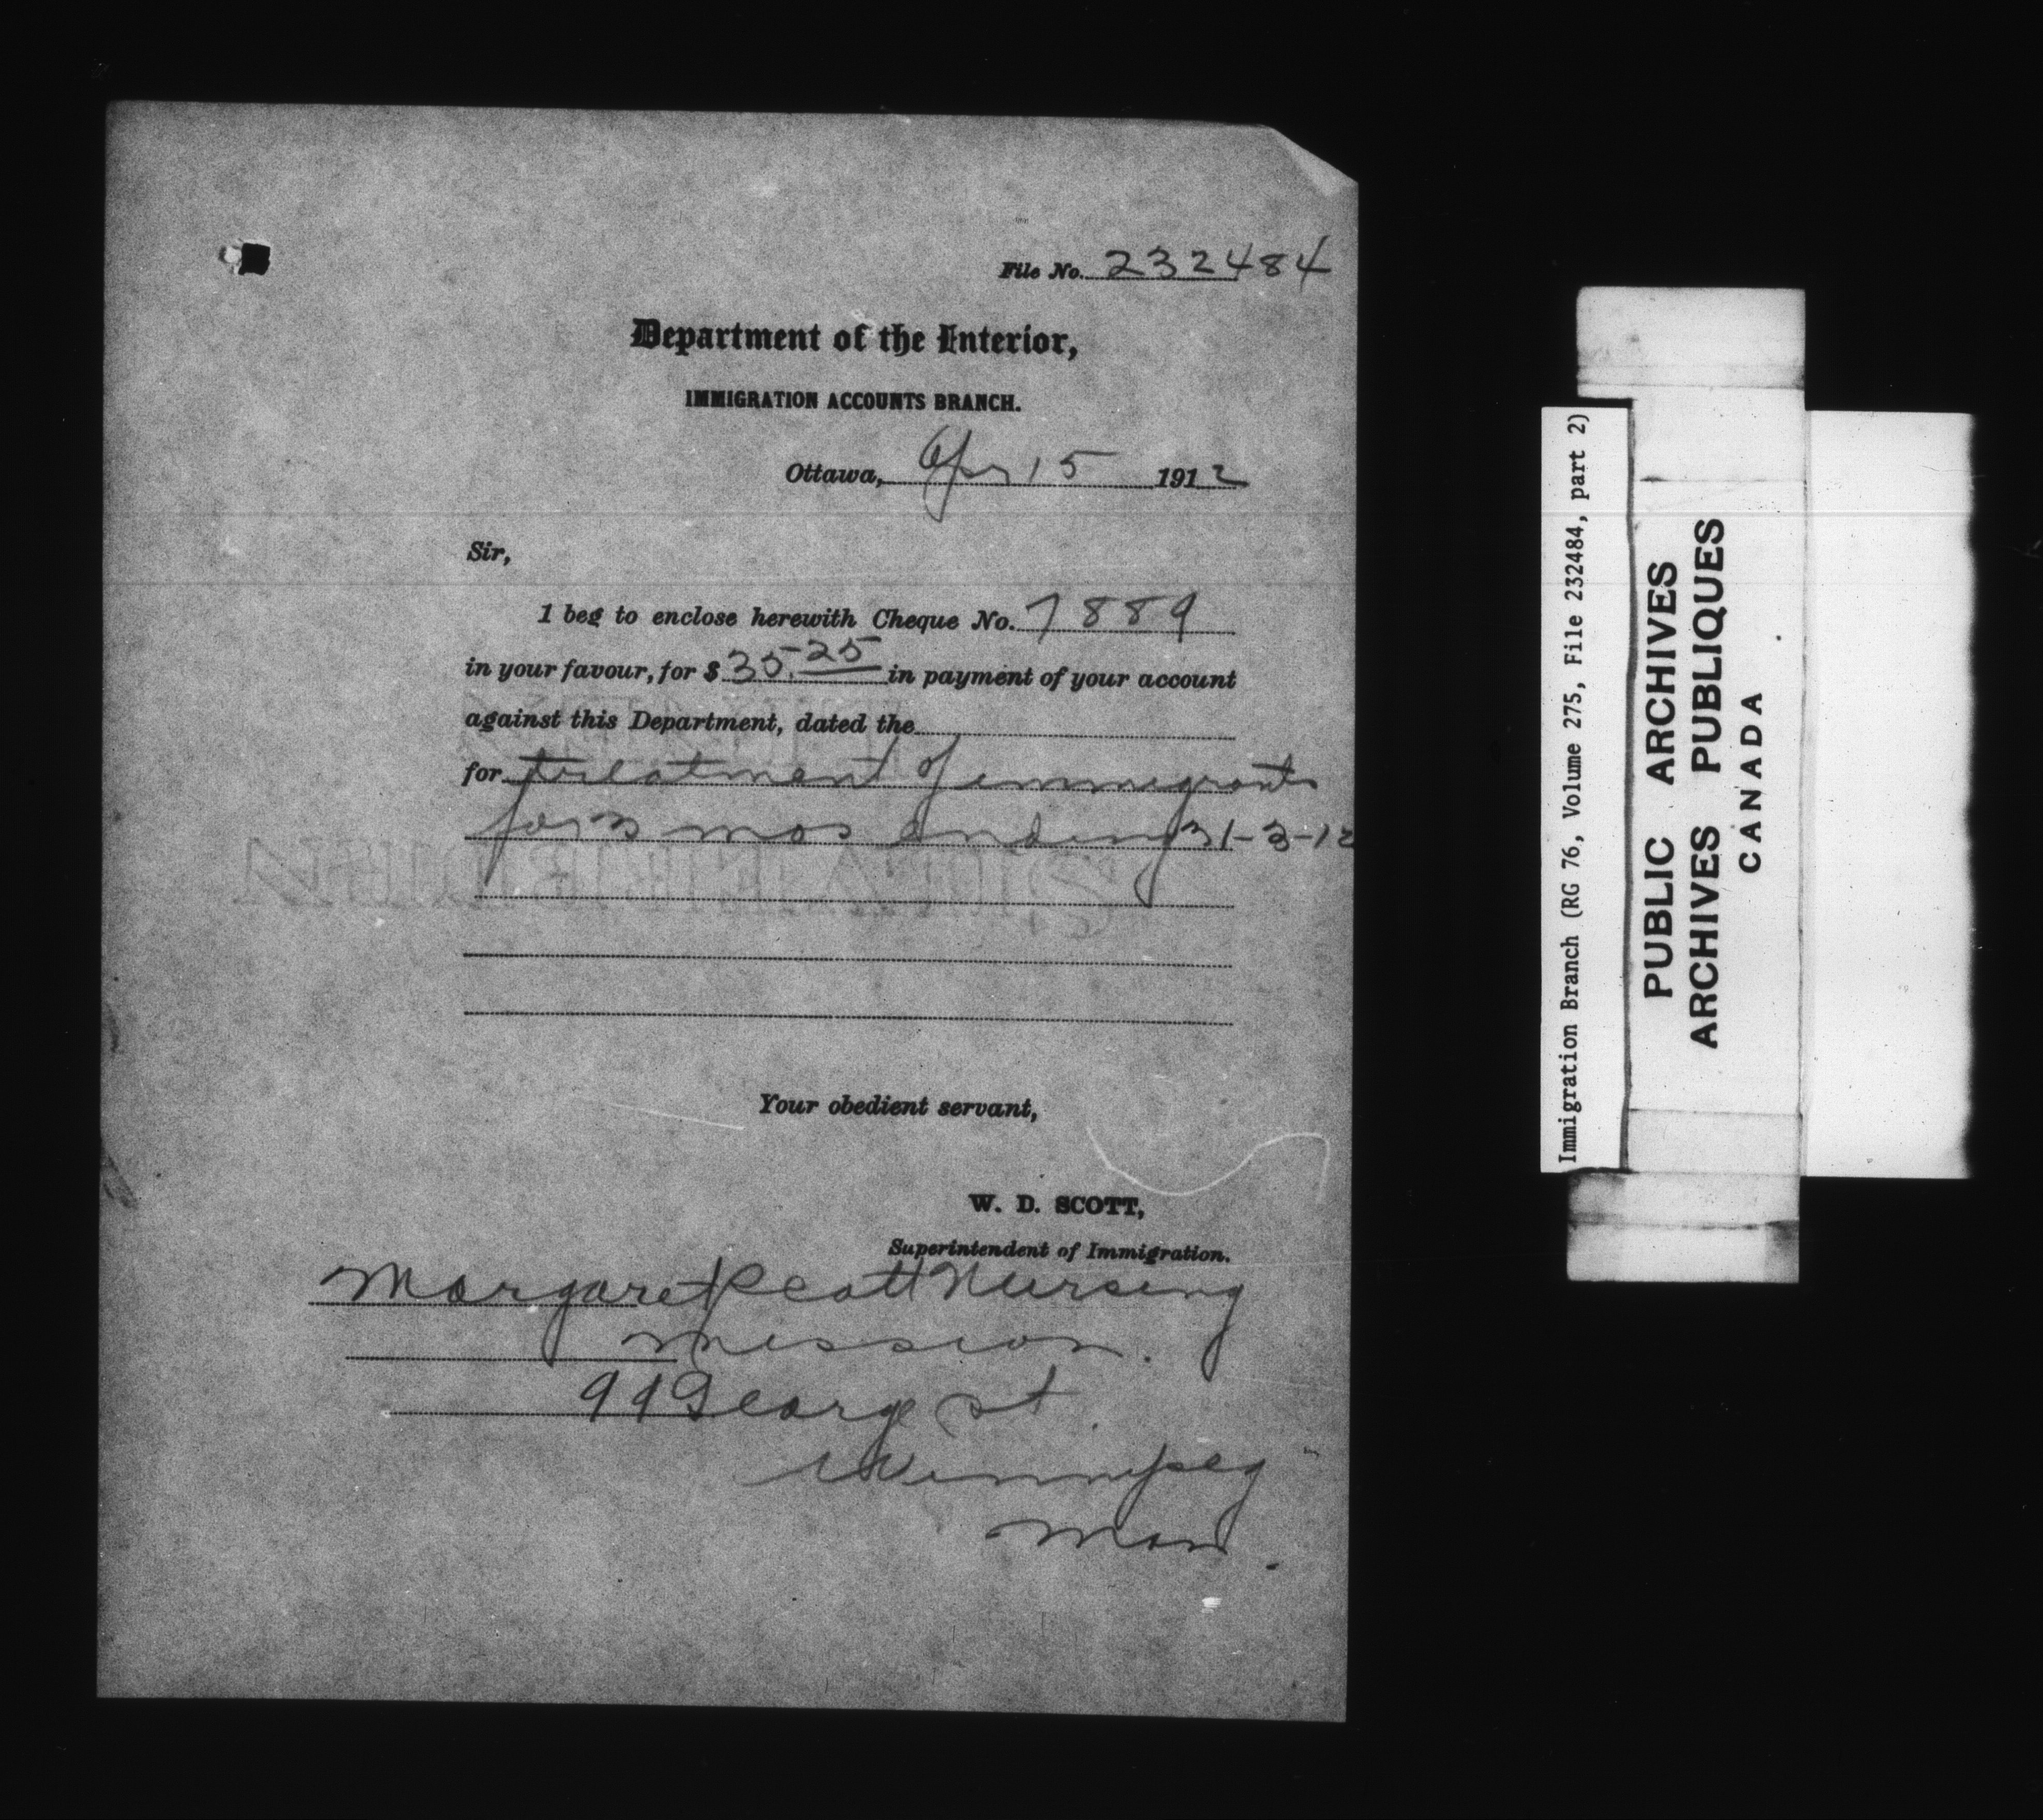 File No. 232484
Department of the Interior,
IMMIGRATION ACCOUNTS BRANCH.
Ottawa, Apr 15 1912
Sir,
I beg to enclose herewith Cheque No. 7889
in your favour, for $ 35.25 in payment of your account
against this Department, dated the
for treatment of immigrants
for 3 mos ending 31-3-12
Your obedient servant,
W. D. SCOTT,
Superintendent of Immigration.
Margaret Scott Nursing
Mission.
99 George St.
Winnipeg
Man.
Immigration Branch (RG 76, Volume 275, File 232484, part 2)
PUBLIC ARCHIVES
ARCHIVES PUBLIQUES
CANADA